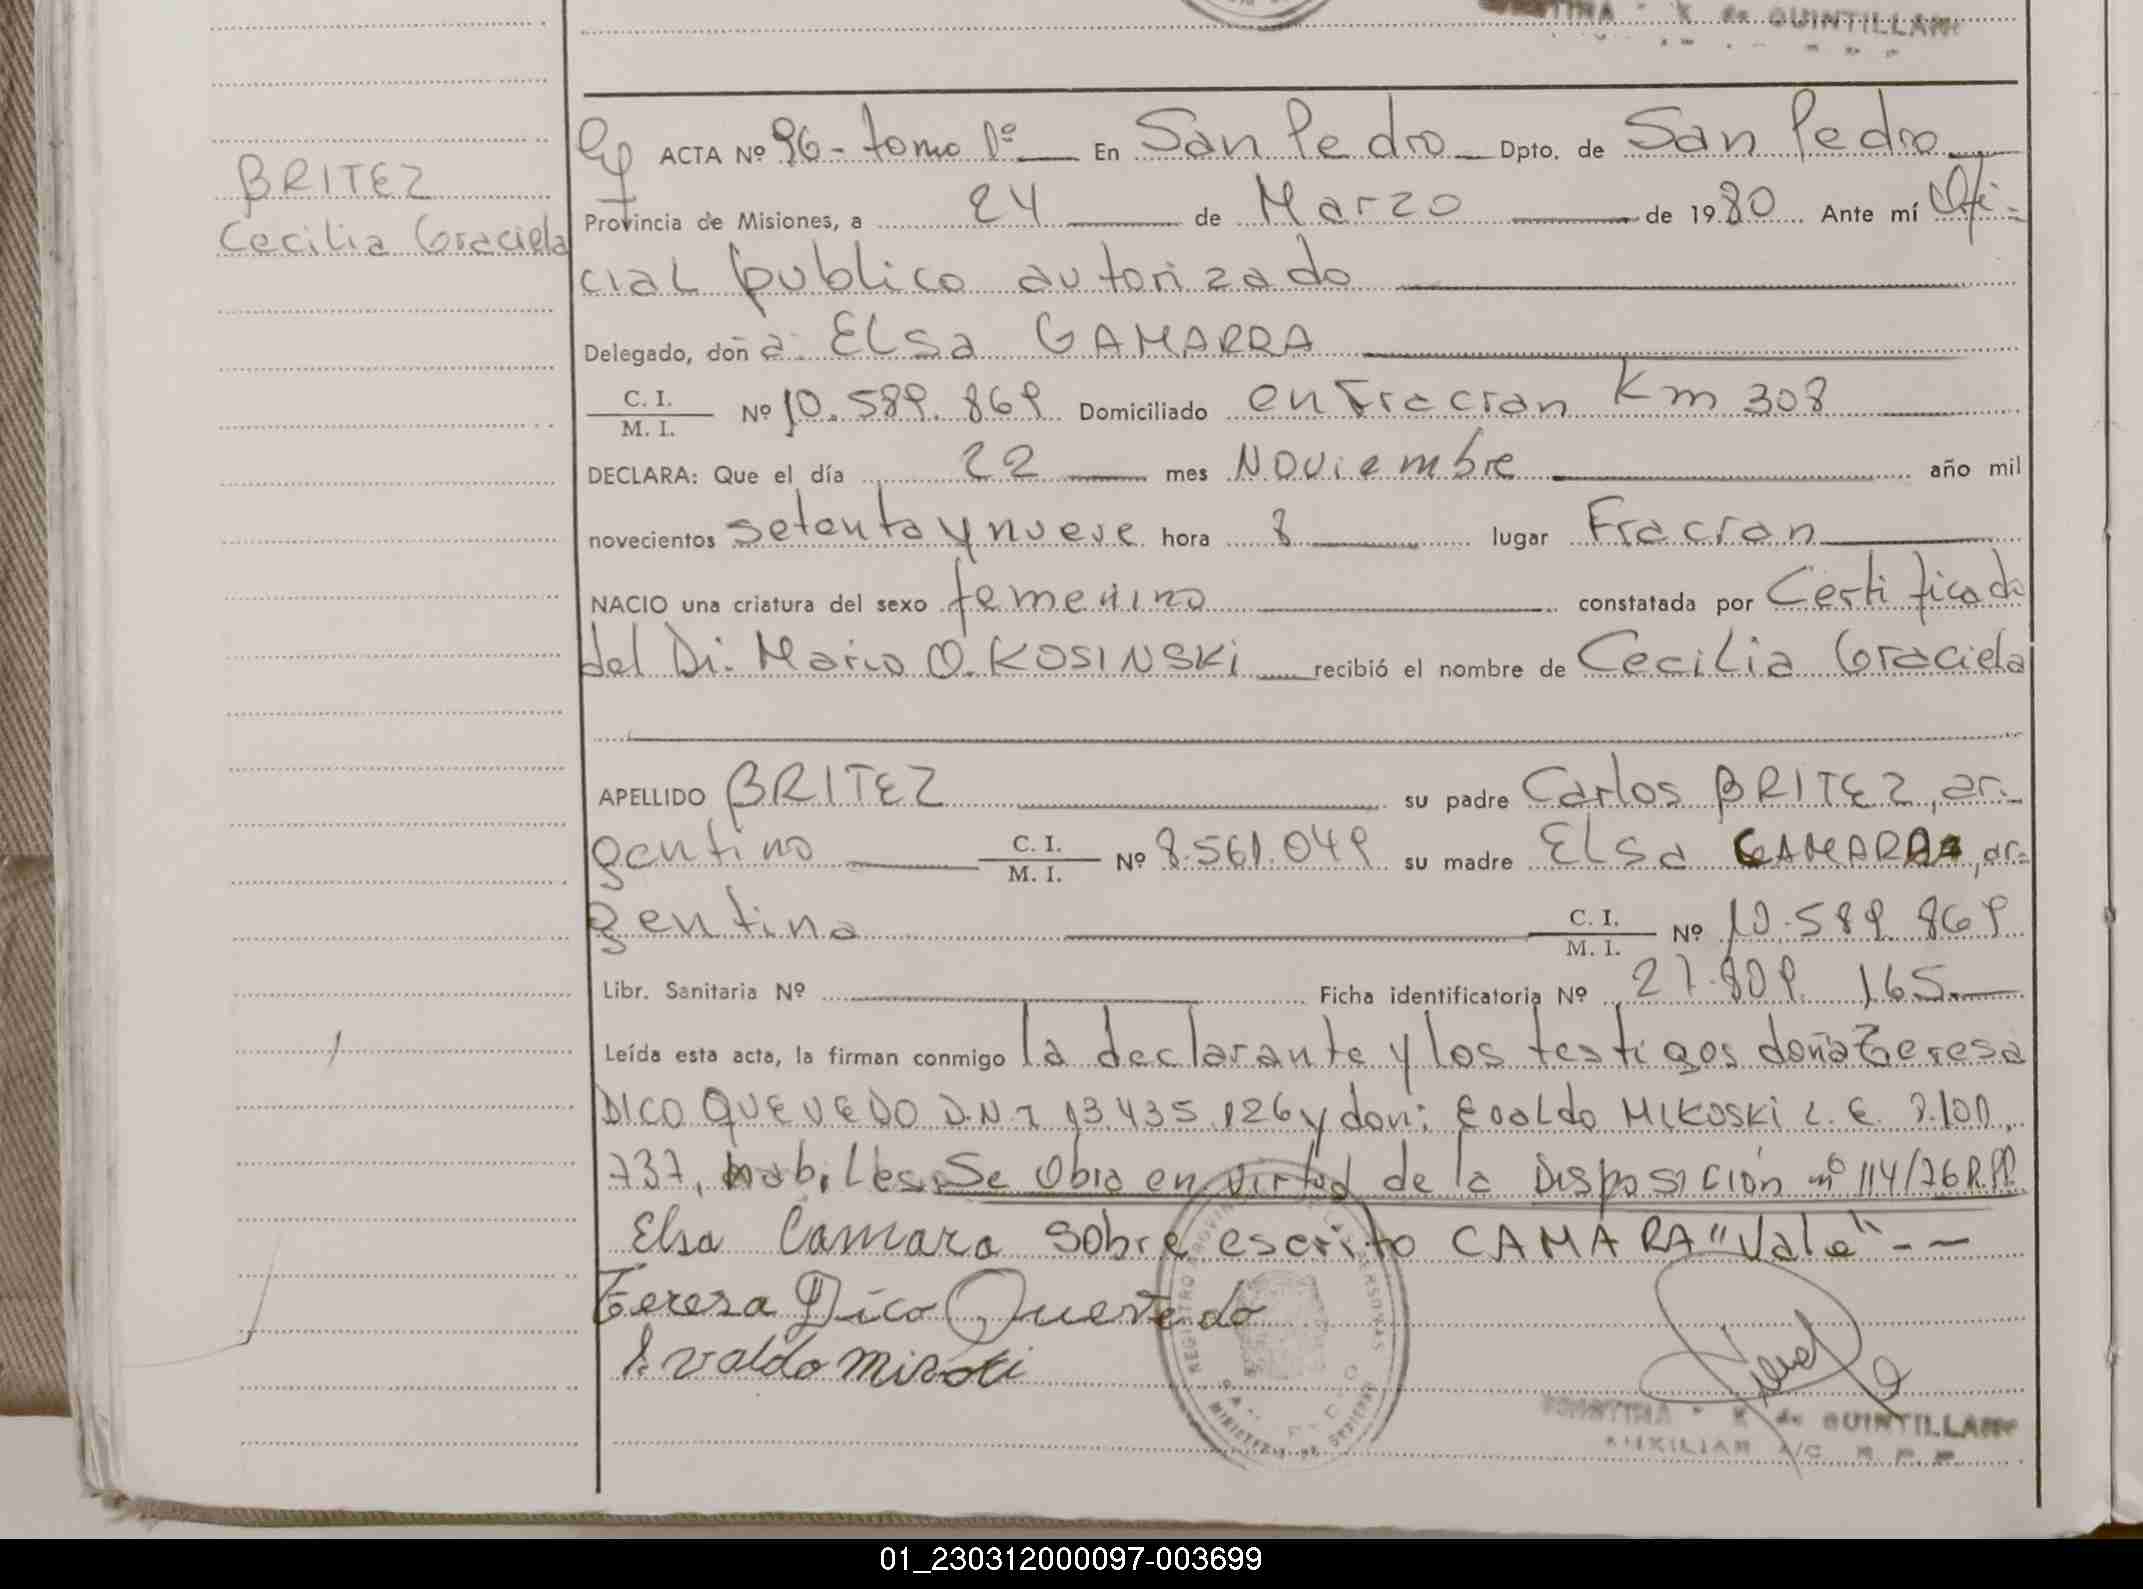 QUINTILLAN
BRITEZ
Cecilia Graciela
ACTA Nº 96 - tomo 1º En San Pedro Dpto. de San Pedro
Provincia de Misiones, a 24 de Marzo de 1980 Ante mí Ofi-
cial publico autorizado
Delegado, doña: Elsa GAMARRA
C. I.
M. I. Nº 10.589.869 Domiciliado en Fracran Km 308
DECLARA: Que el día 22 mes Noviembre año mil
novecientos setenta y nueve hora 8 lugar Fracran
NACIO una criatura del sexo femenino constatada por Certificado
del Dr. Mario O. KOSINSKI recibió el nombre de Cecilia Graciela
APELLIDO BRITEZ su padre Carlos BRITEZ, ar-
gentino C. I. M. I. Nº 8.561.049 su madre Elsa GAMARRA, ar-
gentina C. I. M. I. Nº 10.589.869
Libr. Sanitaria Nº Ficha identificatoria Nº 27.809.165
Leída esta acta, la firman conmigo la declarante y los testigos doña Teresa
DICO QUEVEDO D.N.I 13.435.126 y don: Evaldo MIKOSKI L.E. 8.100.
737, habiles. Se Obra en virtud de la Disposición nº 114/76 R.PP.
Elsa Camara Sobre escrito CAMARA "Vale" - -
Teresa Dico Quevedo
Evaldo
REGISTRO PROVINCIAL DE LAS PERSONAS
K de QUINTILLAN
AUXILIAR A/C R. P. P.
01_230312000097-003699